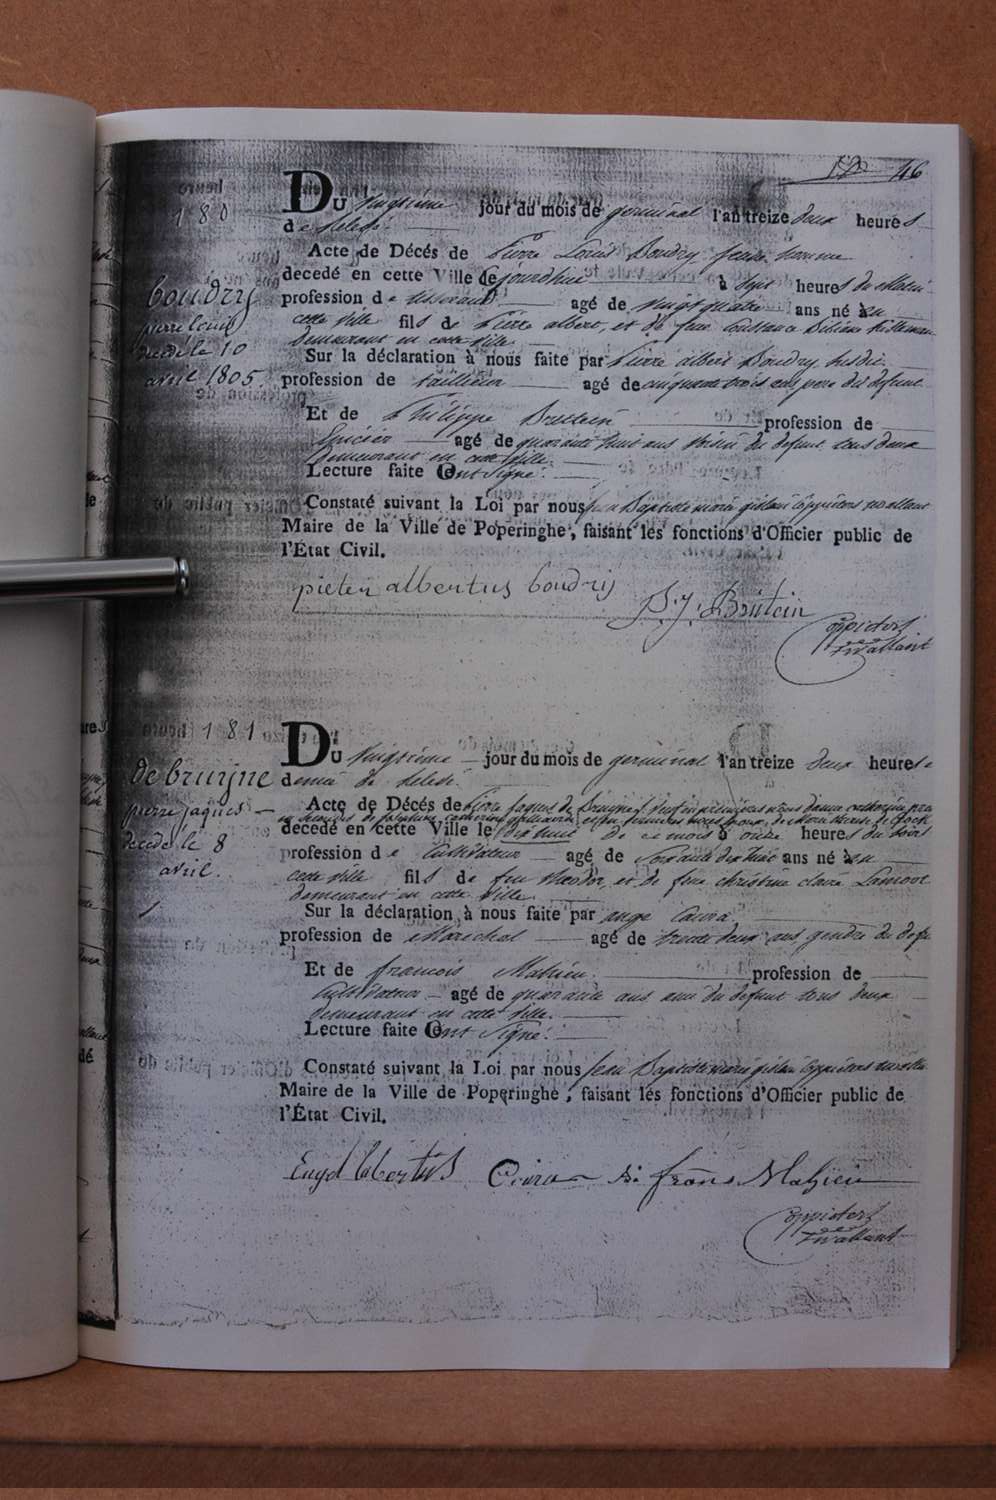 46
180
Du vingtième jour du mois de germinal l'an treize deux heures
de relevé.
Acte de Décés de Pierre Louis Boudry jeune homme
decedé en cette Ville Cejourdhui à sept heures du Matin
profession de tisserand agé de vingtquatre ans né en
cette ville fils de Pierre albert, et de feue Constance
demeurant en cette ville.
boudry
pierre louis
decedé le 10
avril 1805.
Sur la déclaration à nous faite par Pierre albert Boudry susdit
profession de tailleur agé de cinquante trois ans pere du defunt
Et de Philippe profession de
Epicier agé de quarante huit ans voisin du defunt tous deux
demeurant en cette ville.
Lecture faite Ont Signé.
Constaté suivant la Loi par nous Jean Baptiste marie
Maire de la Ville de Poperinghe, faisant les fonctions d'Officier public de
l'État Civil.
pieter albertus boudrij
181
Du vingtième jour du mois de germinal l'an treize deux heures
demie de relevé.
de bruijne
pierre jaques
decedé le 8
avril.
Acte de Décés de Pierre Jaques de Bruijne
decedé en cette Ville le dix huit de ce mois à onze heures du soir
profession de Cultivateur agé de Soixante dix huit ans né en
cette ville fils de feu et de feue christine claire
demeurant en cette ville.
Sur la déclaration à nous faite par ange
profession de Maréchal agé de trente deux ans gendre du
Et de francois Mahieu profession de
Cultivateur agé de quarante ans ami du defunt tous deux
demeurant en cette ville.
Lecture faite Ont Signé.
Constaté suivant la Loi par nous Jean Baptiste marie
Maire de la Ville de Poperinghe, faisant les fonctions d'Officier public de
l'État Civil.
frans Mahieu